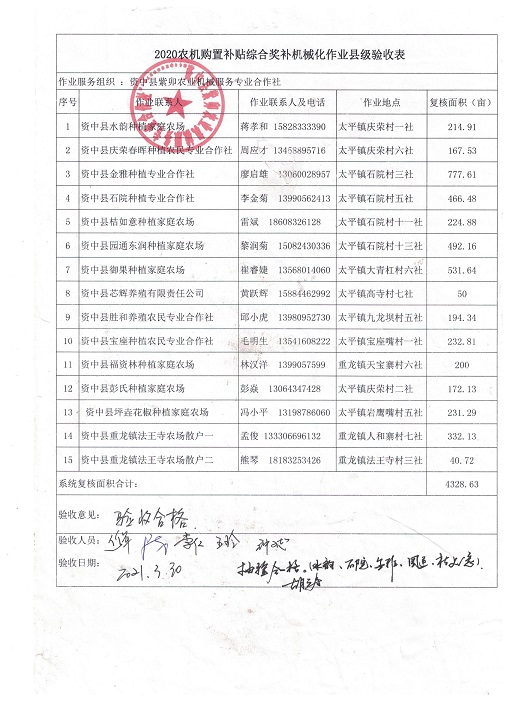 2020农机购置补贴综合奖补机械化作业县级验收表
作业服务组织：资中县紫卯农业机械服务专业合作社
序号 作业联系人 作业联系人及电话 作业地点 复核面积（亩）
1 资中县水韵种植家庭农场 蒋孝和 15828333390 太平镇庆荣村一社 214.91
2 资中县庆荣春晖种植农民专业合作社 周应才 13458895716 太平镇庆荣村六社 167.53
3 资中县金雅种植专业合作社 廖启雄 13060028957 太平镇石院村三社 777.61
4 资中县石院种植专业合作社 李金菊 13990562413 太平镇石院村五社 466.48
5 资中县桔如意种植家庭农场 雷斌 18608326128 太平镇石院村十一社 224.88
6 资中县园通东润种植家庭农场 黎润菊 15082430336 太平镇石院村十三社 492.16
7 资中县御果种植家庭农场 崔睿婕 13568014060 太平镇大青杠村六社 531.64
8 资中县芯辉养殖有限责任公司 黄跃辉 15884462992 太平镇高寺村七社 50
9 资中县胜和养殖农民专业合作社 邱小虎 13980952730 太平镇九龙坝村五社 194.34
10 资中县宝座种植农民专业合作社 毛明生 13541608222 太平镇宝座嘴村一社 232.81
11 资中县福资林种植家庭农场 林汉洋 1399057599 重龙镇天宝寨村六社 200
12 资中县彭氏种植家庭农场 彭焱 13064347428 太平镇庆荣村二社 172.13
13 资中县坪垚花椒种植家庭农场 冯小平 13198786060 太平镇岩鹰嘴村五社 231.29
14 资中县重龙镇法王寺农场散户一 孟俊 133306696132 重龙镇人和寨村七社 332.13
15 资中县重龙镇法王寺农场散户二 熊琴 18183253426 重龙镇法王寺村三社 40.72
系统复核面积合计： 4328.63
验收意见： 验收合格
验收人员：
验收日期： 2021.3.30
抽检合格